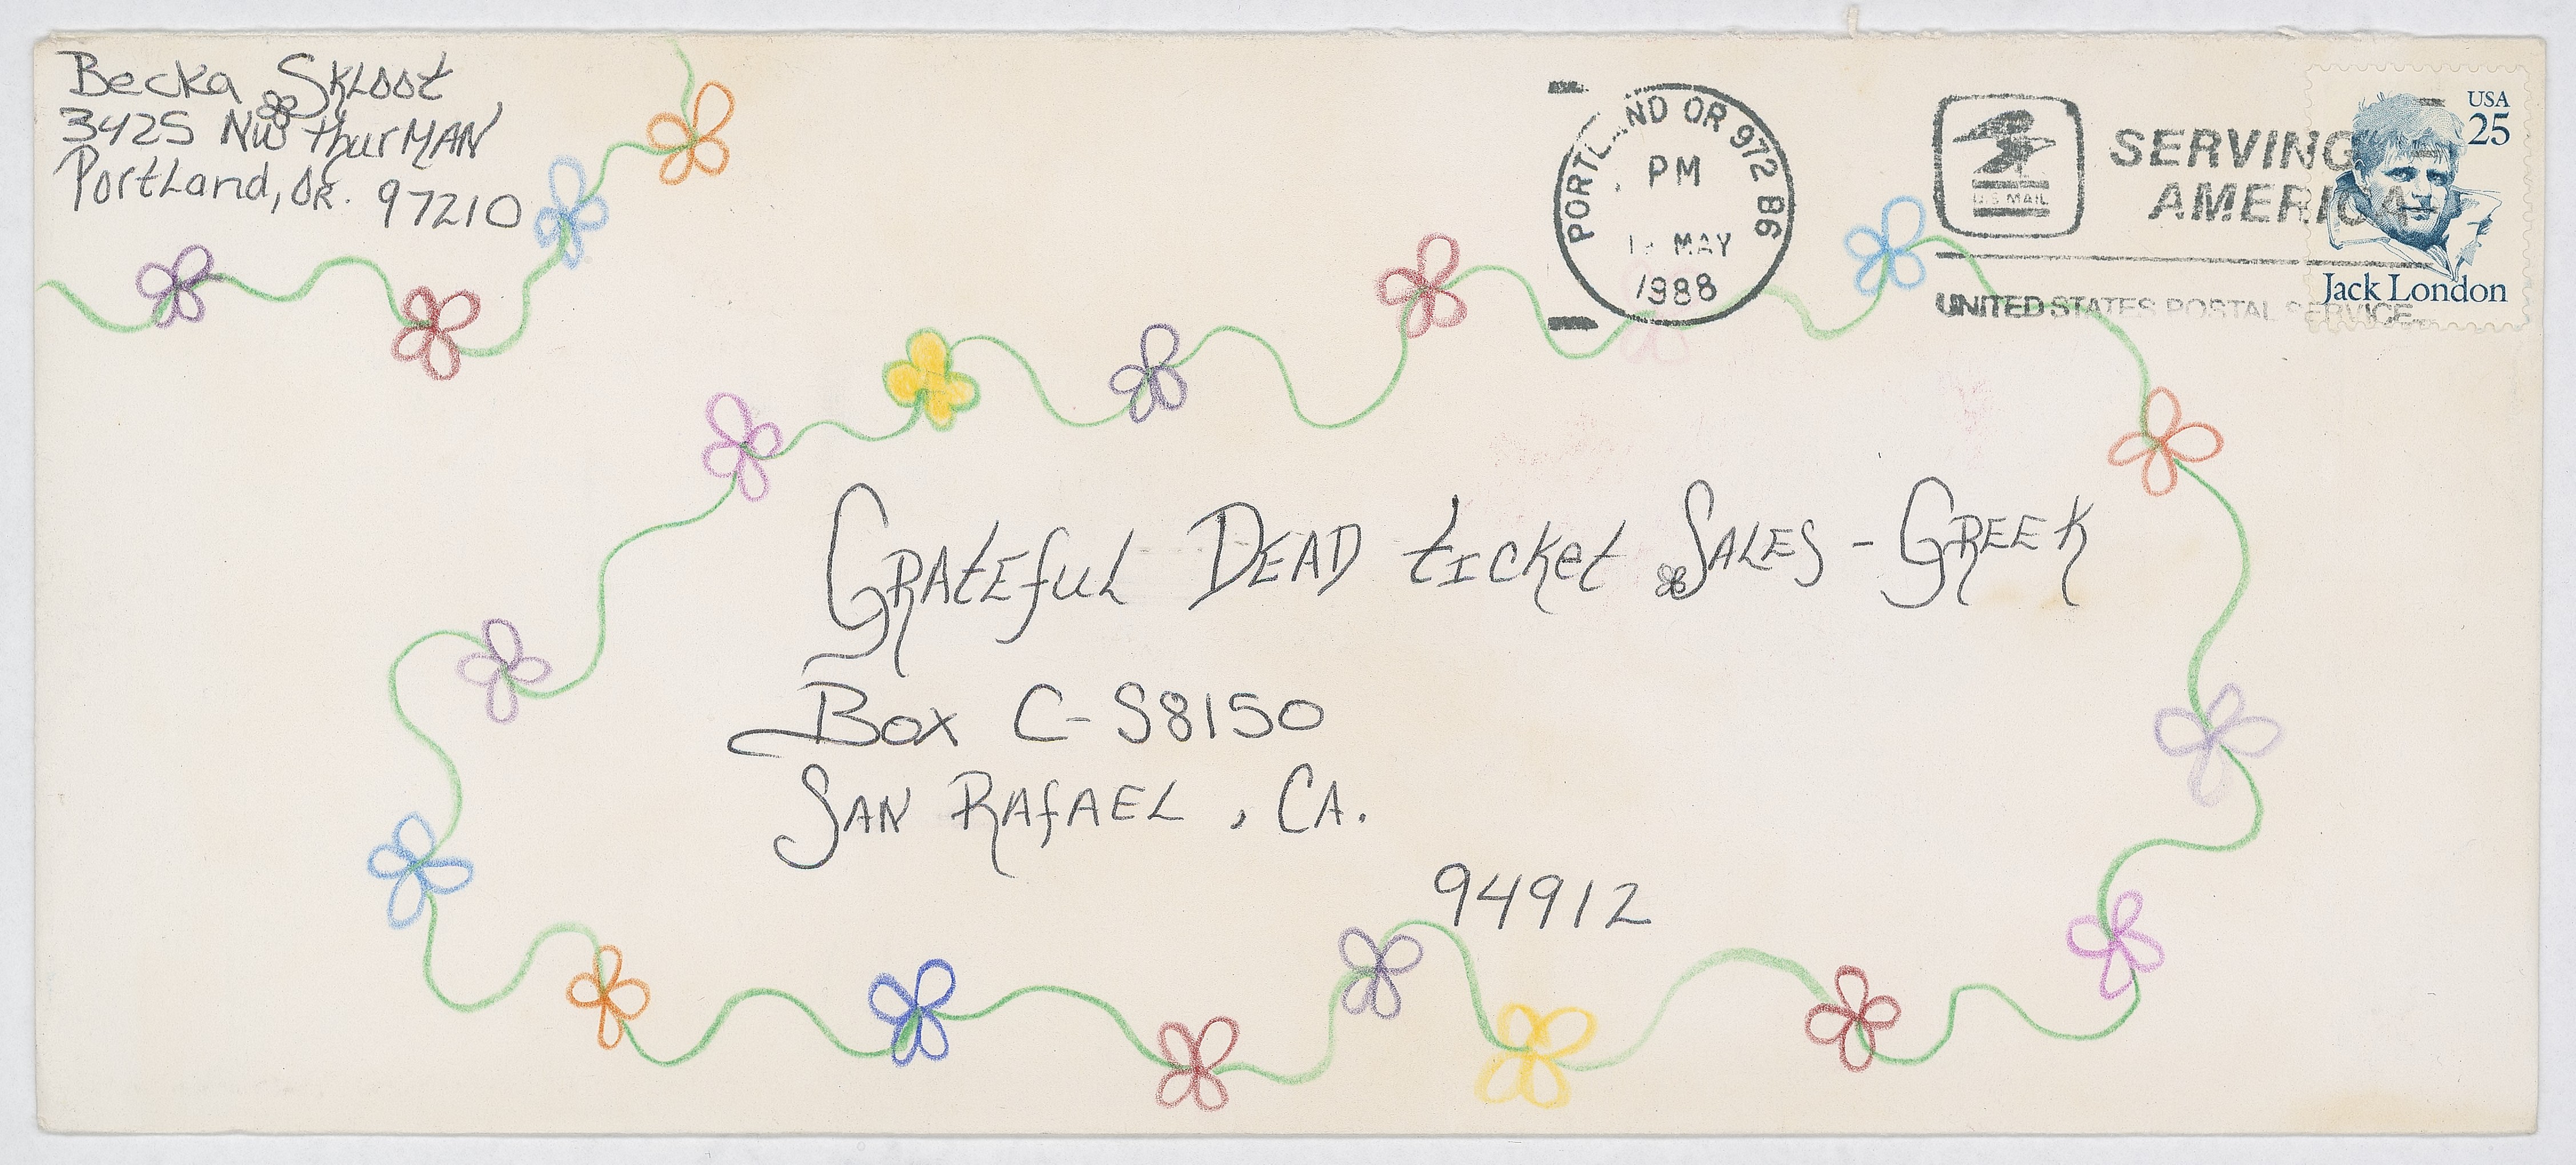 Becka Skloot
3425 NW thurMAN
Portland, OR. 97210
PORTLAND OR 972 B6
PM
MAY
1988
U.S. MAIL
SERVING
AMERICA
UNITED STATES POSTAL SERVICE
USA
25
Jack London
GRATEfUL DEAD ticket SALES - GREEK
Box C-S8150
SAN RAfAEL, CA.
94912